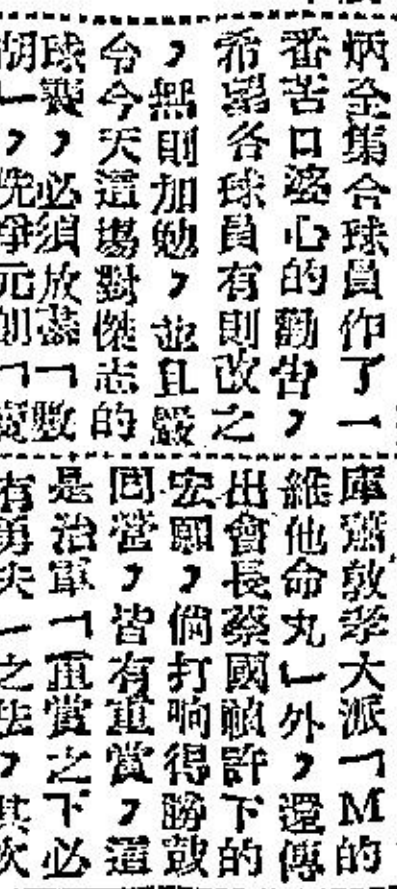 炳全集合球員作了一
番苦口婆心的勸告，
希望各球員有則改之
，無則加勉，並且嚴
令今天這場對傑志的
球賽，必須放棄「散
一，先爭元創「
庫蓋敦孝大派「M的
維他命丸」外，還傳
出會長蔡國禎許下的
宏願，倘打响得勝鼓
回營，皆有重賞，這
是治軍「重賞之下必
有勇夫」之法，其次